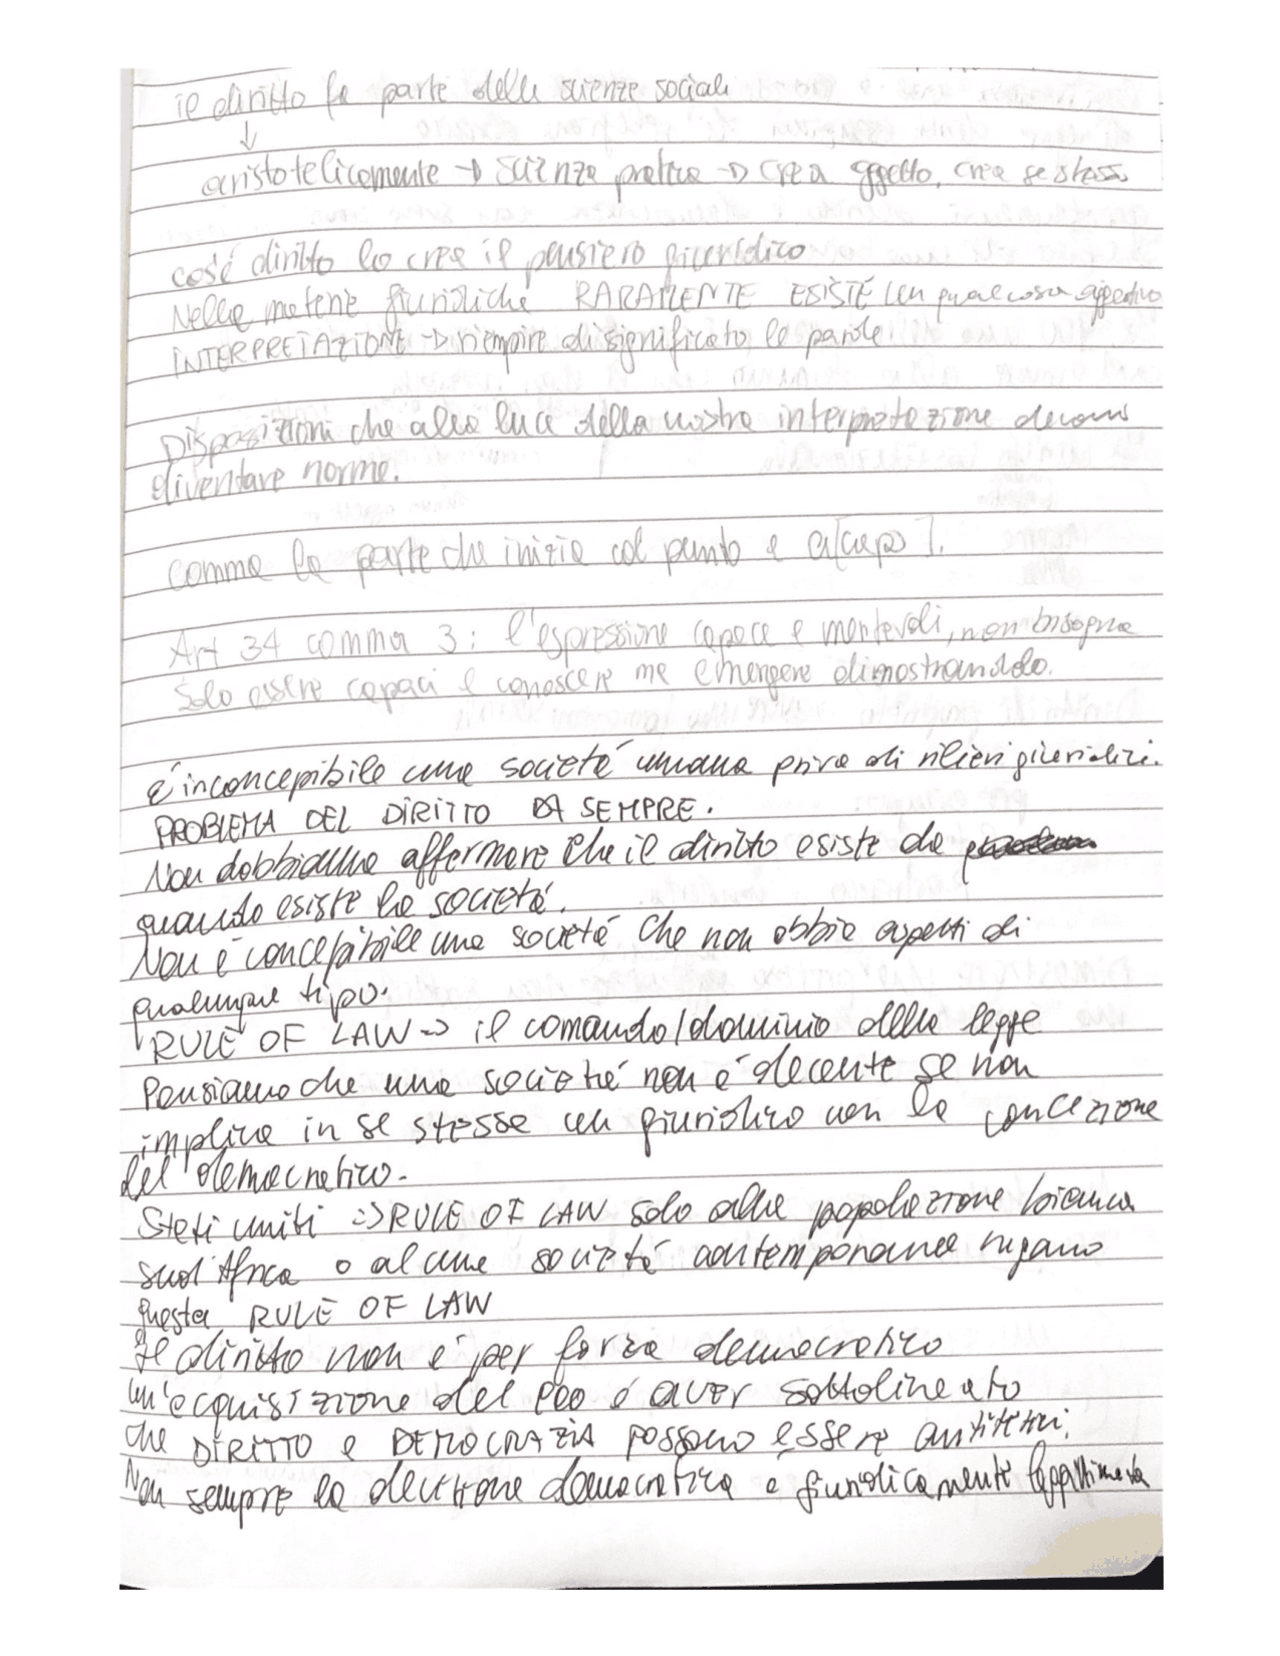 il diritto fa parte delle scienze sociali
↓
aristotelicamente → scienza pratica → crea oggetto, crea se stessa
cos'è diritto lo crea il pensiero giuridico
Nelle materie giuridiche RARAMENTE ESISTE un qualcosa oggettivo
INTERPRETAZIONE → riempire di significato le parole.
Disposizioni che alla luce della nostra interpretazione devono
diventare norme.
comma la parte che inizia col punto e a[capo].
Art 34 comma 3: l'espressione capace e meritevoli, non bisogna
solo essere capaci e conoscere ma emergere dimostrandolo.
é inconcepibile una societé umana priva di rilievi giuridici.
PROBLEMA DEL DIRITTO DA SEMPRE.
Non dobbiamo affermare che il diritto esiste da
quando esiste la societé.
Non é concepibile una societé che non abbia aspetti di
qualunque tipo.
RULE OF LAW → il comando/dominio della legge
Pensiamo che una societé non é decente se non
implica in se stessa un giuridico con la concezione
del democratico.
Stati uniti → RULE OF LAW solo alla popolazione bianca
sud'Africa o alcune societé contemporanea negano
questa RULE OF LAW
Il diritto non é per forza democratico
un'acquisizione del é aver sottolineato
che DIRITTO e DEMOCRAZIA possono essere antitetici.
Non sempre la decisione democratica é giuridicamente legittimata